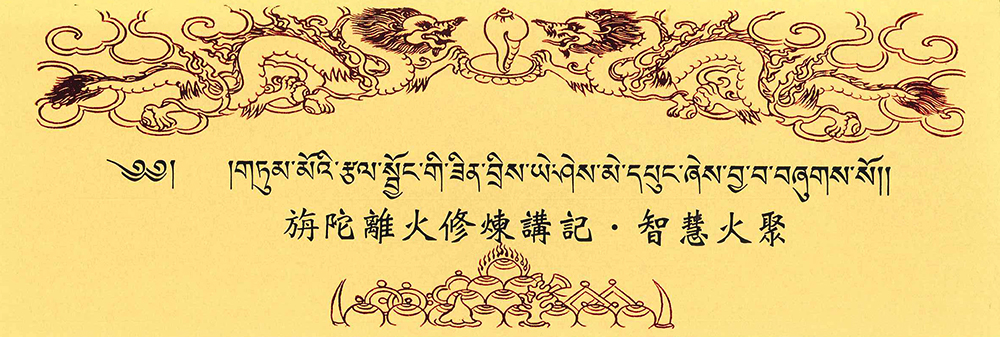 ༄༅། །གཏུམ་མོའི་རྩལ་སྦྱོང་གི་ཟིན་བྲིས་ཡེ་ཤེས་མེ་དཔུང་ཞེས་བྱ་བ་བཞུགས་སོ།།
旃陀離火修煉講記·智慧火聚